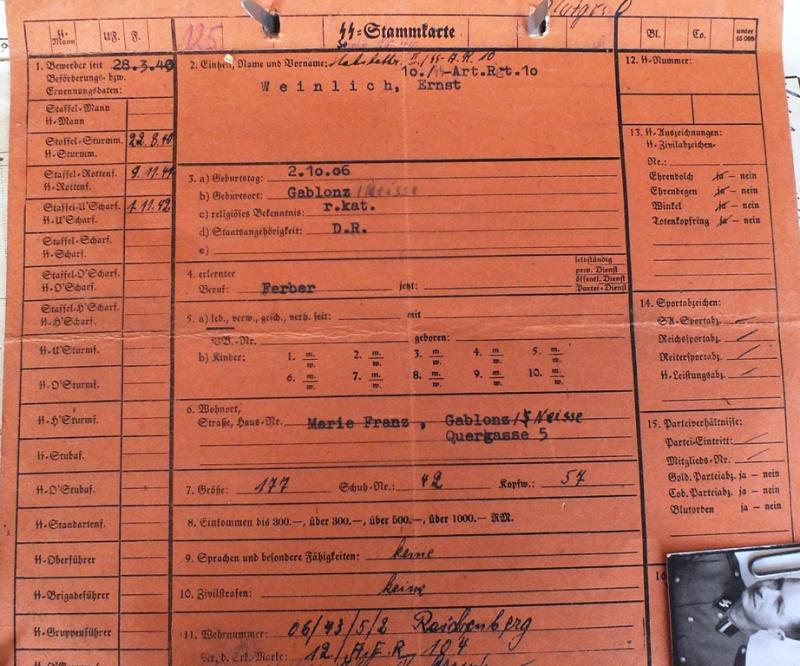 SS-Mann UF. F. 125 SS-Stammkarte Bl. Co. unter 15 000
1. Bewerber seit 28.3.40
Beförderungs- bzw.
Ernennungsdaten:
Staffel-Mann
SS-Mann
Staffel-Sturmm. 22.8.40
SS-Sturmm.
Staffel-Rottenf. 9.11.41
SS-Rottenf.
Staffel-U'Scharf. 1.11.42
SS-U'Scharf.
Staffel-Scharf.
SS-Scharf.
Staffel-O'Scharf.
SS-O'Scharf.
Staffel-H'Scharf.
SS-H'Scharf.
SS-U'Sturmf.
SS-O'Sturmf.
SS-H'Sturmf.
SS-Stubaf.
SS-O'Stubaf.
SS-Standartenf.
SS-Oberführer
SS-Brigadeführer
SS-Gruppenführer
2. Einheit, Name und Vorname: II./SS-A.R. 10
10./SS-Art.Rgt.10
Weinlich, Ernst
3. a) Geburtstag: 2.10.06
b) Geburtsort: Gablonz /Neisse
c) religiöses Bekenntnis: r.kat.
d) Staatsangehörigkeit: D.R.
e)
4. erlernter
Beruf: Ferber jetzt:
selbständig
priv. Dienst
öffentl. Dienst
Partei-Dienst
5. a) led., verw., gesch., verh. seit: mit
VB.-Nr. geboren:
b) Kinder: 1. m. w. 2. m. w. 3. m. w. 4. m. w. 5. m. w.
6. m. w. 7. m. w. 8. m. w. 9. m. w. 10. m. w.
6. Wohnort,
Straße, Haus-Nr. Marie Franz, Gablonz/Neisse
Quergasse 5
7. Größe: 177 Schuh-Nr.: 42 Kopfw.: 57
8. Einkommen bis 300.—, über 300.—, über 500.—, über 1000.— RM.
9. Sprachen und besondere Fähigkeiten: keine
10. Zivilstrafen: keine
11. Wehrnummer: 06/43/5/2 Reichenberg
Nr. d. Erk.-Marke: 12./A.E.R. 104
12. SS-Nummer:
13. SS-Auszeichnungen:
SS-Zivilabzeichen:
Nr.:
Ehrendolch ja – nein
Ehrendegen ja – nein
Winkel ja – nein
Totenkopfring ja – nein
14. Sportabzeichen:
SA-Sportabz.
Reichsportabz.
Reitersportabz.
SS-Leistungsabz.
15. Parteiverhältnisse:
Partei-Eintritt:
Mitglieds-Nr.
Gold. Parteiabz. ja – nein
Cob. Parteiabz. ja – nein
Blutorden ja – nein